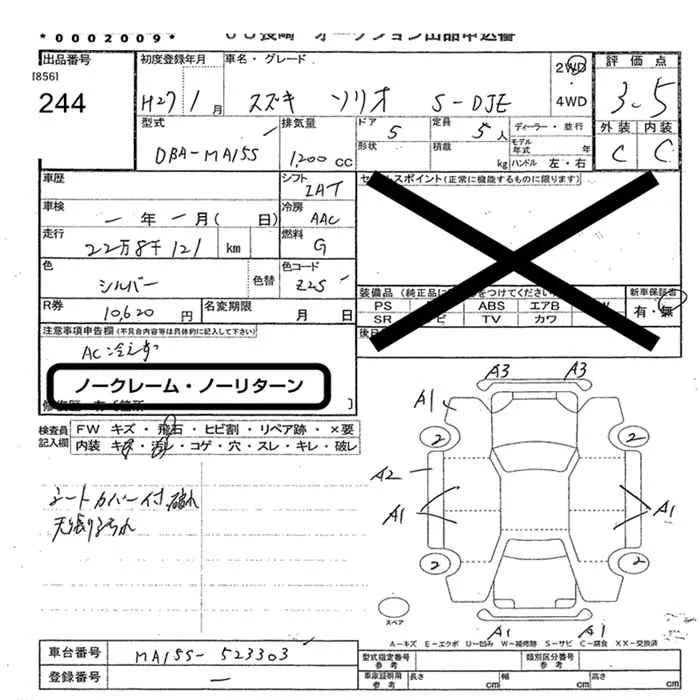 *0002009*
オークション出品申込書
出品番号
[856]
244
初度登録年月
H27 1 月
車名・グレード
スズキ ソリオ S-DJE
2WD
・
4WD
評価点
3.5
外装 内装
C C
型式
DBA-MA15S
排気量
1,200 cc
ドア
5
形状
定員
5 人
積載
kg
ディーラー・並行
モデル年式 年
ハンドル 左・右
車歴
シフト
IAT
セールスポイント(正常に機能するものに限ります)
車検
年 月( 日)
冷房
AAC
走行
22万8千121 km
燃料
G
色
シルバー
色替
色コード
Z2S
R券
10,620 円
名変期限
月 日
装備品
PS ABS エアB
SR TV カワ
新車保証書
有・無
注意事項申告欄(不具合内容等は具体的に記入して下さい)
AC冷えず
ノークレーム・ノーリターン
検査員記入欄
FW キズ・飛石・ヒビ割・リペア跡・×要
内装 キズ・汚レ・コゲ・穴・スレ・キレ・破レ
シートカバー付 破れ
天張り汚れ
A3 A3
A1
2 2
A2
A1 A1
2 2
スペア
A1 A1
A－キズ E－エクボ U－凹み W－補修跡 S－サビ C－腐食 XX－交換済
車台番号
MA15S-523303
登録番号
型式指定番号 参考
類別区分番号 参考
車庫証明用 参考
長さ cm
幅 cm
高さ cm